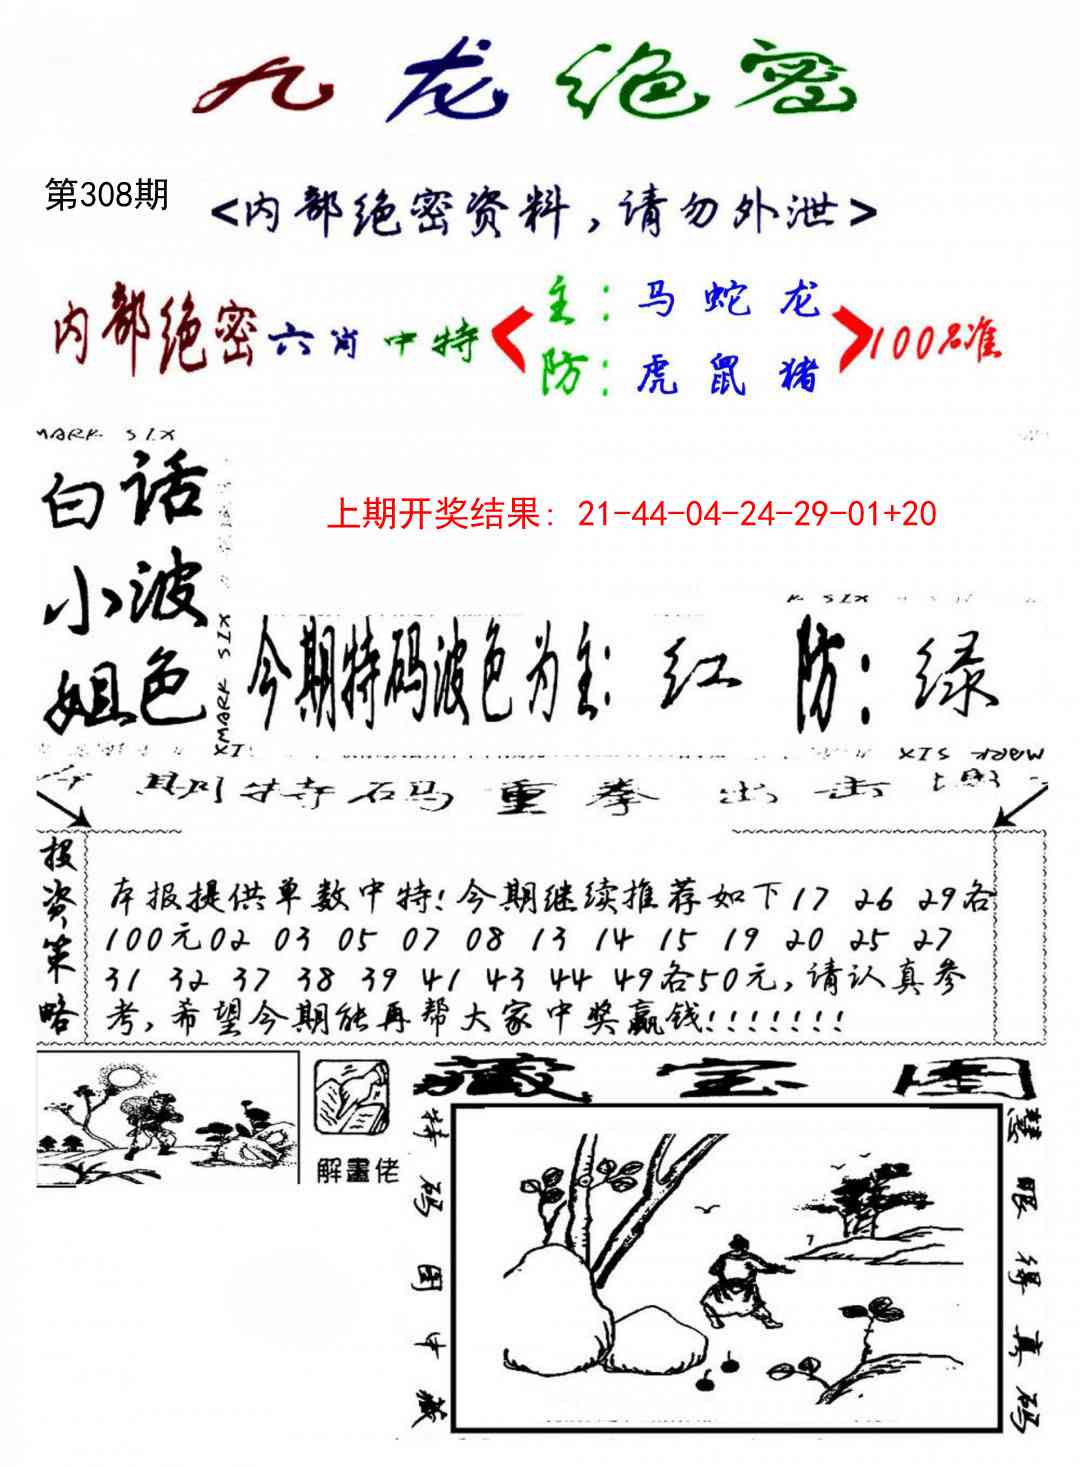 九龙绝密
第308期
<内部绝密资料,请勿外泄>
内部绝密六肖中特
主:马 蛇 龙
防:虎 鼠 猪
100%准
MARK SIX
白话
小波
姐色
上期开奖结果: 21-44-04-24-29-01+20
K SIX
MARK SIX
今期特码波色为主: 红 防: 绿
MARK SIX
期特码重拳出击
投资策略
本报提供单数中特!今期继续推荐如下17 26 29各
100元02 03 05 07 08 13 14 15 19 20 25 27
31 32 37 38 39 41 43 44 49各50元,请认真参
考,希望今期能再帮大家中奖赢钱!!!!!!!
解畫佬
藏宝图
特码图中藏
慧眼得真码
7